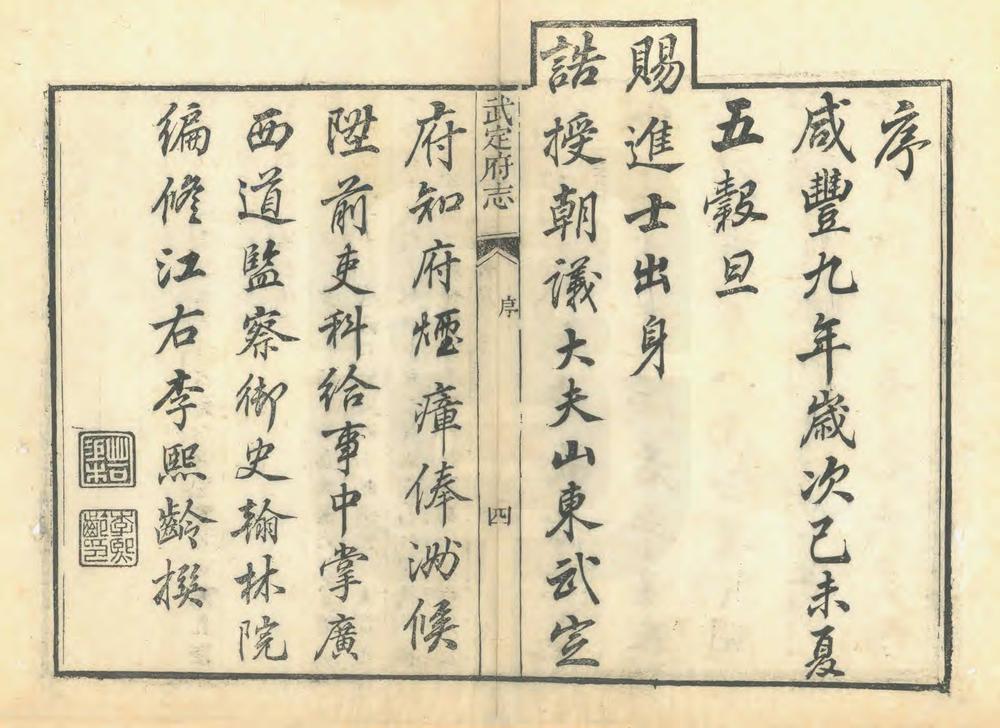 序
咸豐九年歲次己未夏
五穀旦
賜進士出身
誥授朝議大夫山東武定
武定府志
序
四
府知府煙瘴俸滿候
陞前吏科給事中掌廣
西道監察御史翰林院
編修江右李熙齡撰
李熙齡印